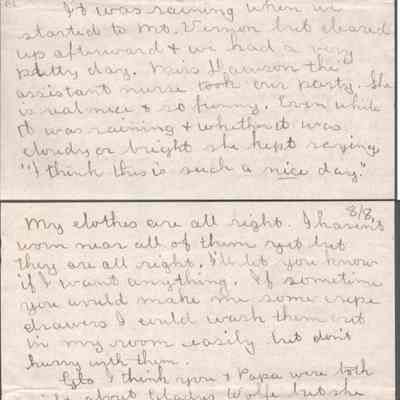 It was raining when we
started to Mt. Vernon but cleared
up afterward & we had a very
pretty day. Miss Lawson the
assistant nurse took our party. She
is real nice & so funny. Even while
it was raining & whether it was
cloudy or bright she kept saying
"I think this is such a nice day."
8/8
My clothes are all right. I haven't
worn near all of them yet but
they are all right. I'll let you know
if I want anything. If sometime
you would make me some crepe
drawers I could wash them out
in my room easily but don't
hurry with them.
I think you & Papa were both
about Gladys Wolfe but she